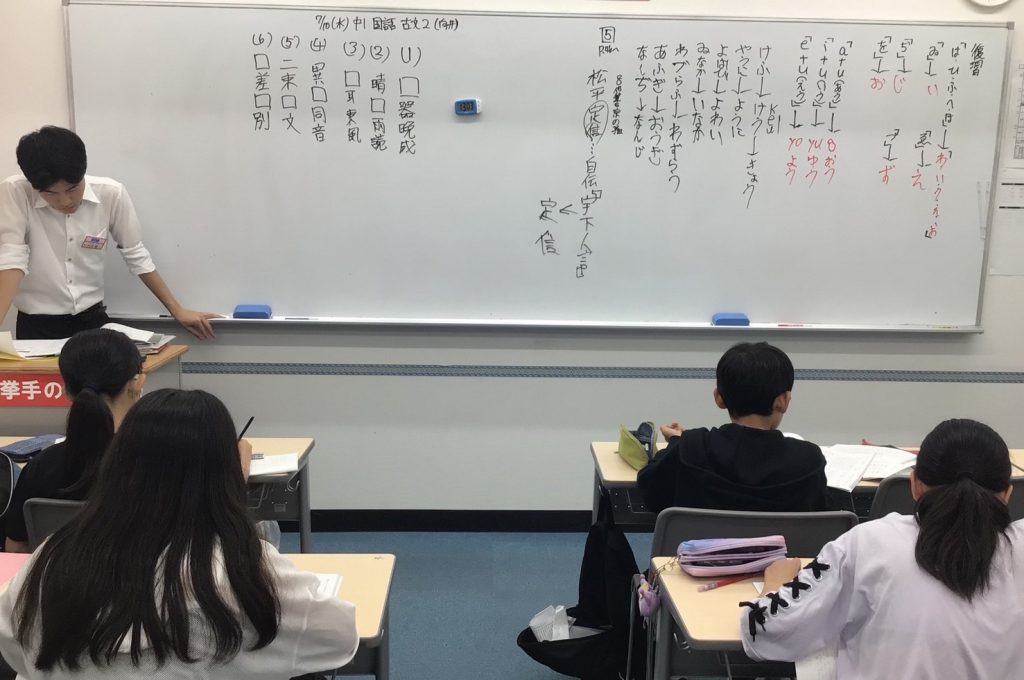 復習
「は・ひ・ふ・へ・ほ」→「わ・い・う・え・お」
「ゐ」→い 「ゑ」→え
「ぢ」→じ 「づ」→ず
「を」→お
「a+u(あう)」→oおう
「i+u(いう)」→yuゆう
「e+u(えう)」→yoよう
けふ→けう→きょう
やうに→ように
よはひ→よわい
ゐなか→いなか
わづらふ→わずらう
あふぎ→おうぎ
なんぢ→なんじ
5
松平定信…自伝「宇下人言」
定信
7/10(水)中1 国語 古文2
(1)□器晩成
(2)晴□雨読
(3)□耳東風
(4)異□同音
(5)二束□文
(6)□差□別
挙手の